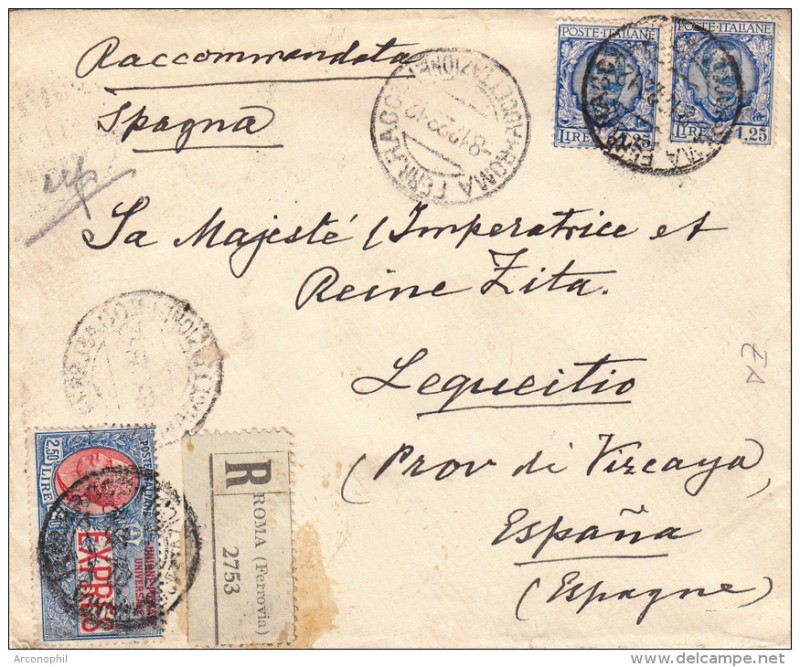 Raccommandata
Spagna
POSTE·ITALIANE
LIRE 1,25
POSTE·ITALIANE
LIRE 1,25
ROMA FERR. RACC.
8·12 22-12
Sa Majesté l'Imperatrice et
Reine Zita.
Lequeitio
(Prov di Vizcaya)
España
(Espagne)
2.50 LIRE
POSTE ITALIANE
EXPRES
R
ROMA (Ferrovia)
2753
Arconophil
delcampe.net